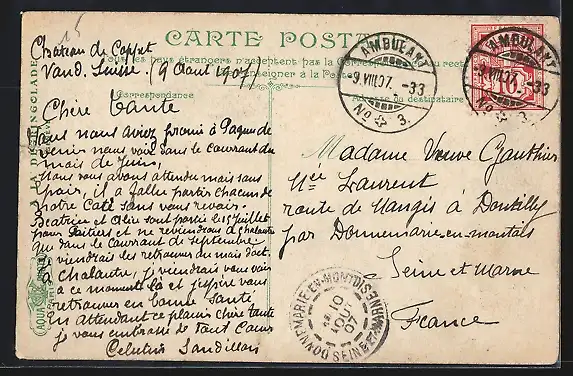 15
CARTE POSTALE
Tous les pays étrangers n'acceptent pas la au recto
se renseigner à la Poste
Correspondance
Adresse du destinataire
Chateau de Coppet
Vaud. Suisse. (9 Aout 1907)
Chère Tante
Vous nous aviez promis à Paques de
venir nous voir dans le courant du
mois de Juin,
Nous vous avons attendu mais sans
il a fallu partir chacun de
notre Coté sans vous revoir.
Beatrice et Alice sont parties les Juillet
pour Poitiers et ne reviendront à Chalautre
que dans le courant de Septembre
Je viendrais les retrouver du mois d'oct.
à Chalautre, je viendrais vous voir
à ce moment là et j'espère vous
retrouver en bonne Santé,
En attendant ce plaisir chère tante
je vous embrasse de tout Cœur
Celestin Sandillon
Madame Veuve Gauthier
Née Laurent
route de Nangis à Dontilly
par Donnemarie-en-montois
Seine et Marne
France
AMBULANT
-9.VIII.07. -33
No 3.
AMBULANT
-9.VIII.07. -33
No 3.
10
DONNEMARIE-EN-MONTOIS
SEINE-ET-MARNE
10
AOUT
07
AQUA